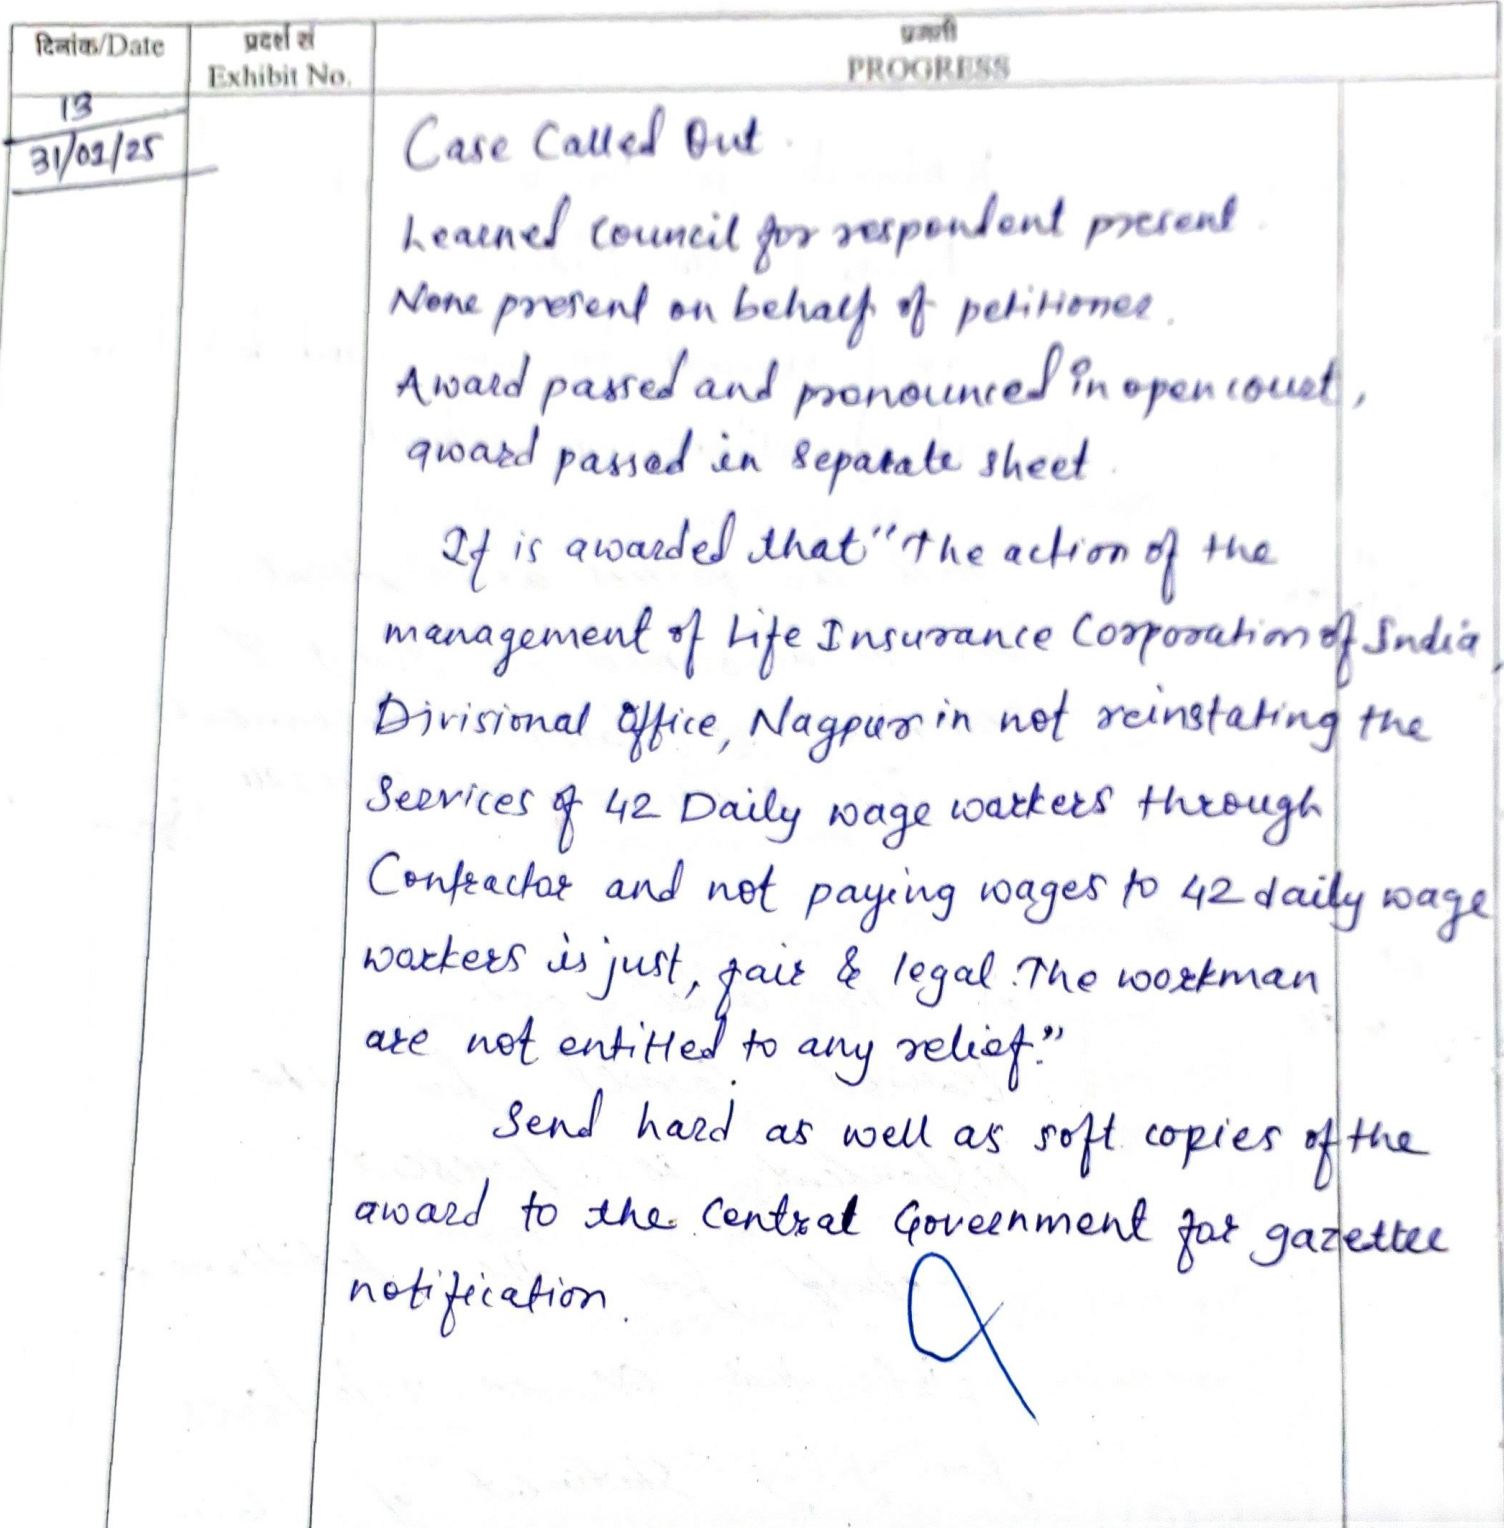 दिनांक/Date
प्रदर्श सं
Exhibit No.
प्रगती
PROGRESS
13
31/01/25
Case Called Out.
Learned Council for respondent present.
None present on behalf of petitioner.
Award passed and pronounced in open court,
award passed in Separate sheet.
It is awarded that "The action of the
management of Life Insurance Corporation of India,
Divisional Office, Nagpur in not reinstating the
Services of 42 Daily wage workers through
Contractor and not paying wages to 42 daily wage
workers is just, fair & legal. The workman
are not entitled to any relief."
Send hard as well as soft copies of the
award to the Central Government for gazettee
notification.